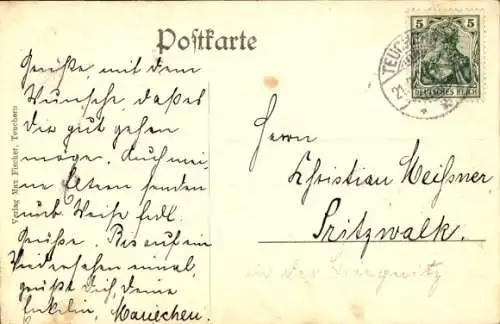 Postkarte
5 5
DEUTSCHES REICH
TEUCHERN
21.
Verlag Max Fischer, Teuchern
Grüße, mit dem
Wunsche, daß es
dir gut gehen
möge. Auch mei-
ne Eltern senden
und frdl.
Grüße. Bis auf ein
Wiedersehen einmal,
grüßt dich, deine
Enkelin, Mariechen.
Herrn
Christian Meißner
Pritzwalk.
in der